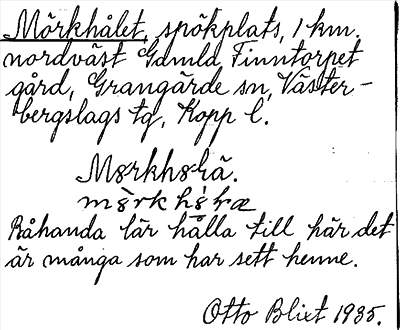 Mörkhålet, spökplats, 1 km.
nordväst Gamla Finntorpet
gård, Grangärde sn, Väster-
bergslags tg, Kopp l.
Mørkhøła.
mø̀rk hø̀ɫæ
Råhanda lär hålla till här det
är många som har sett henne.
Otto Blixt 1935.